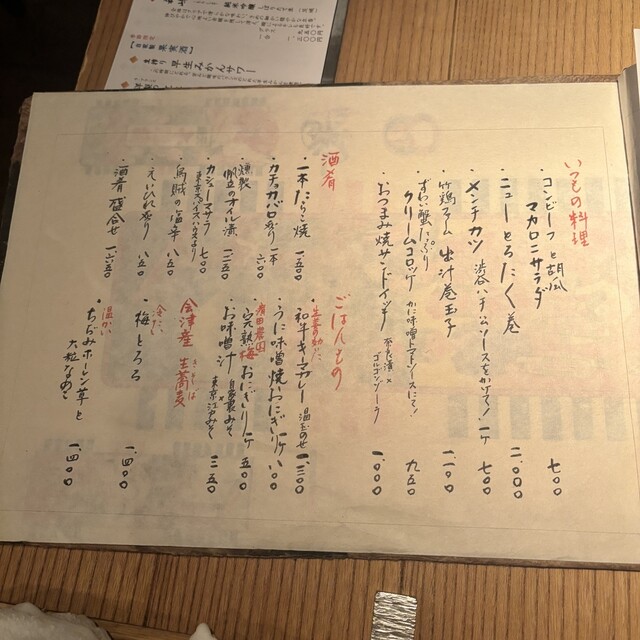 いつもの料理
・コンビーフと胡瓜
マカロニサラダ 七〇〇
・ニューとろたく巻 二、〇〇〇
・メンチカツ 渋谷ハチ公ソースをかけて! 一ヶ 七〇〇
・竹鶏ファーム 出汁巻玉子 一、一〇〇
・ずわい蟹たっぷり
クリームコロッケ かに味噌トマトソースにて! 九五〇
・おつまみ焼サンドイッチ 奈良漬×ゴルゴンゾーラ 一、〇〇〇
酒肴
・一本たらこ焼 一、一五〇
・カチョカバロ炙り 一本 六〇〇
・燻製
帆立のオイル漬 一、二五〇
・カシューマサラ 七〇〇
東京スパイス
・烏賊の塩辛 八五〇
・えいひれ炙り 八五〇
・酒肴 盛合せ 一、六五〇
ごはんもの
生姜の効いた
・和牛キーマカレー 温玉のせ 一、三〇〇
・うに味噌焼おにぎり 一ヶ 八〇〇
濱田農園
・完熟梅おにぎり 一ヶ 五〇〇
・お味噌汁 自家製みそ×東京江戸みそ 三五〇
会津産 生蕎麦
冷たい
・梅とろろ 一、四〇〇
温かい
・ちぢみホーレン草と
大粒なめこ 一、四〇〇
純米吟醸
果実酒
早生みかんサワー